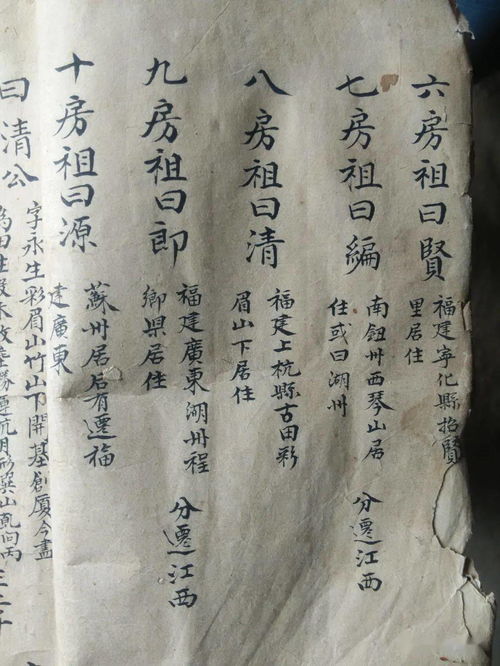 六房祖曰賢
福建寧化縣招賢
里居住
七房祖曰編
南鈕州西琴山居
住或曰湖州
分遷江西
八房祖曰清
福建上杭縣古田彩
眉山下居住
九房祖曰郎
福建廣東湖州程
鄉縣居住
分遷江西
十房祖曰源
蘇州居后有遷福
建廣東
曰清公
字永生彩眉山竹山下開基創厦今盡